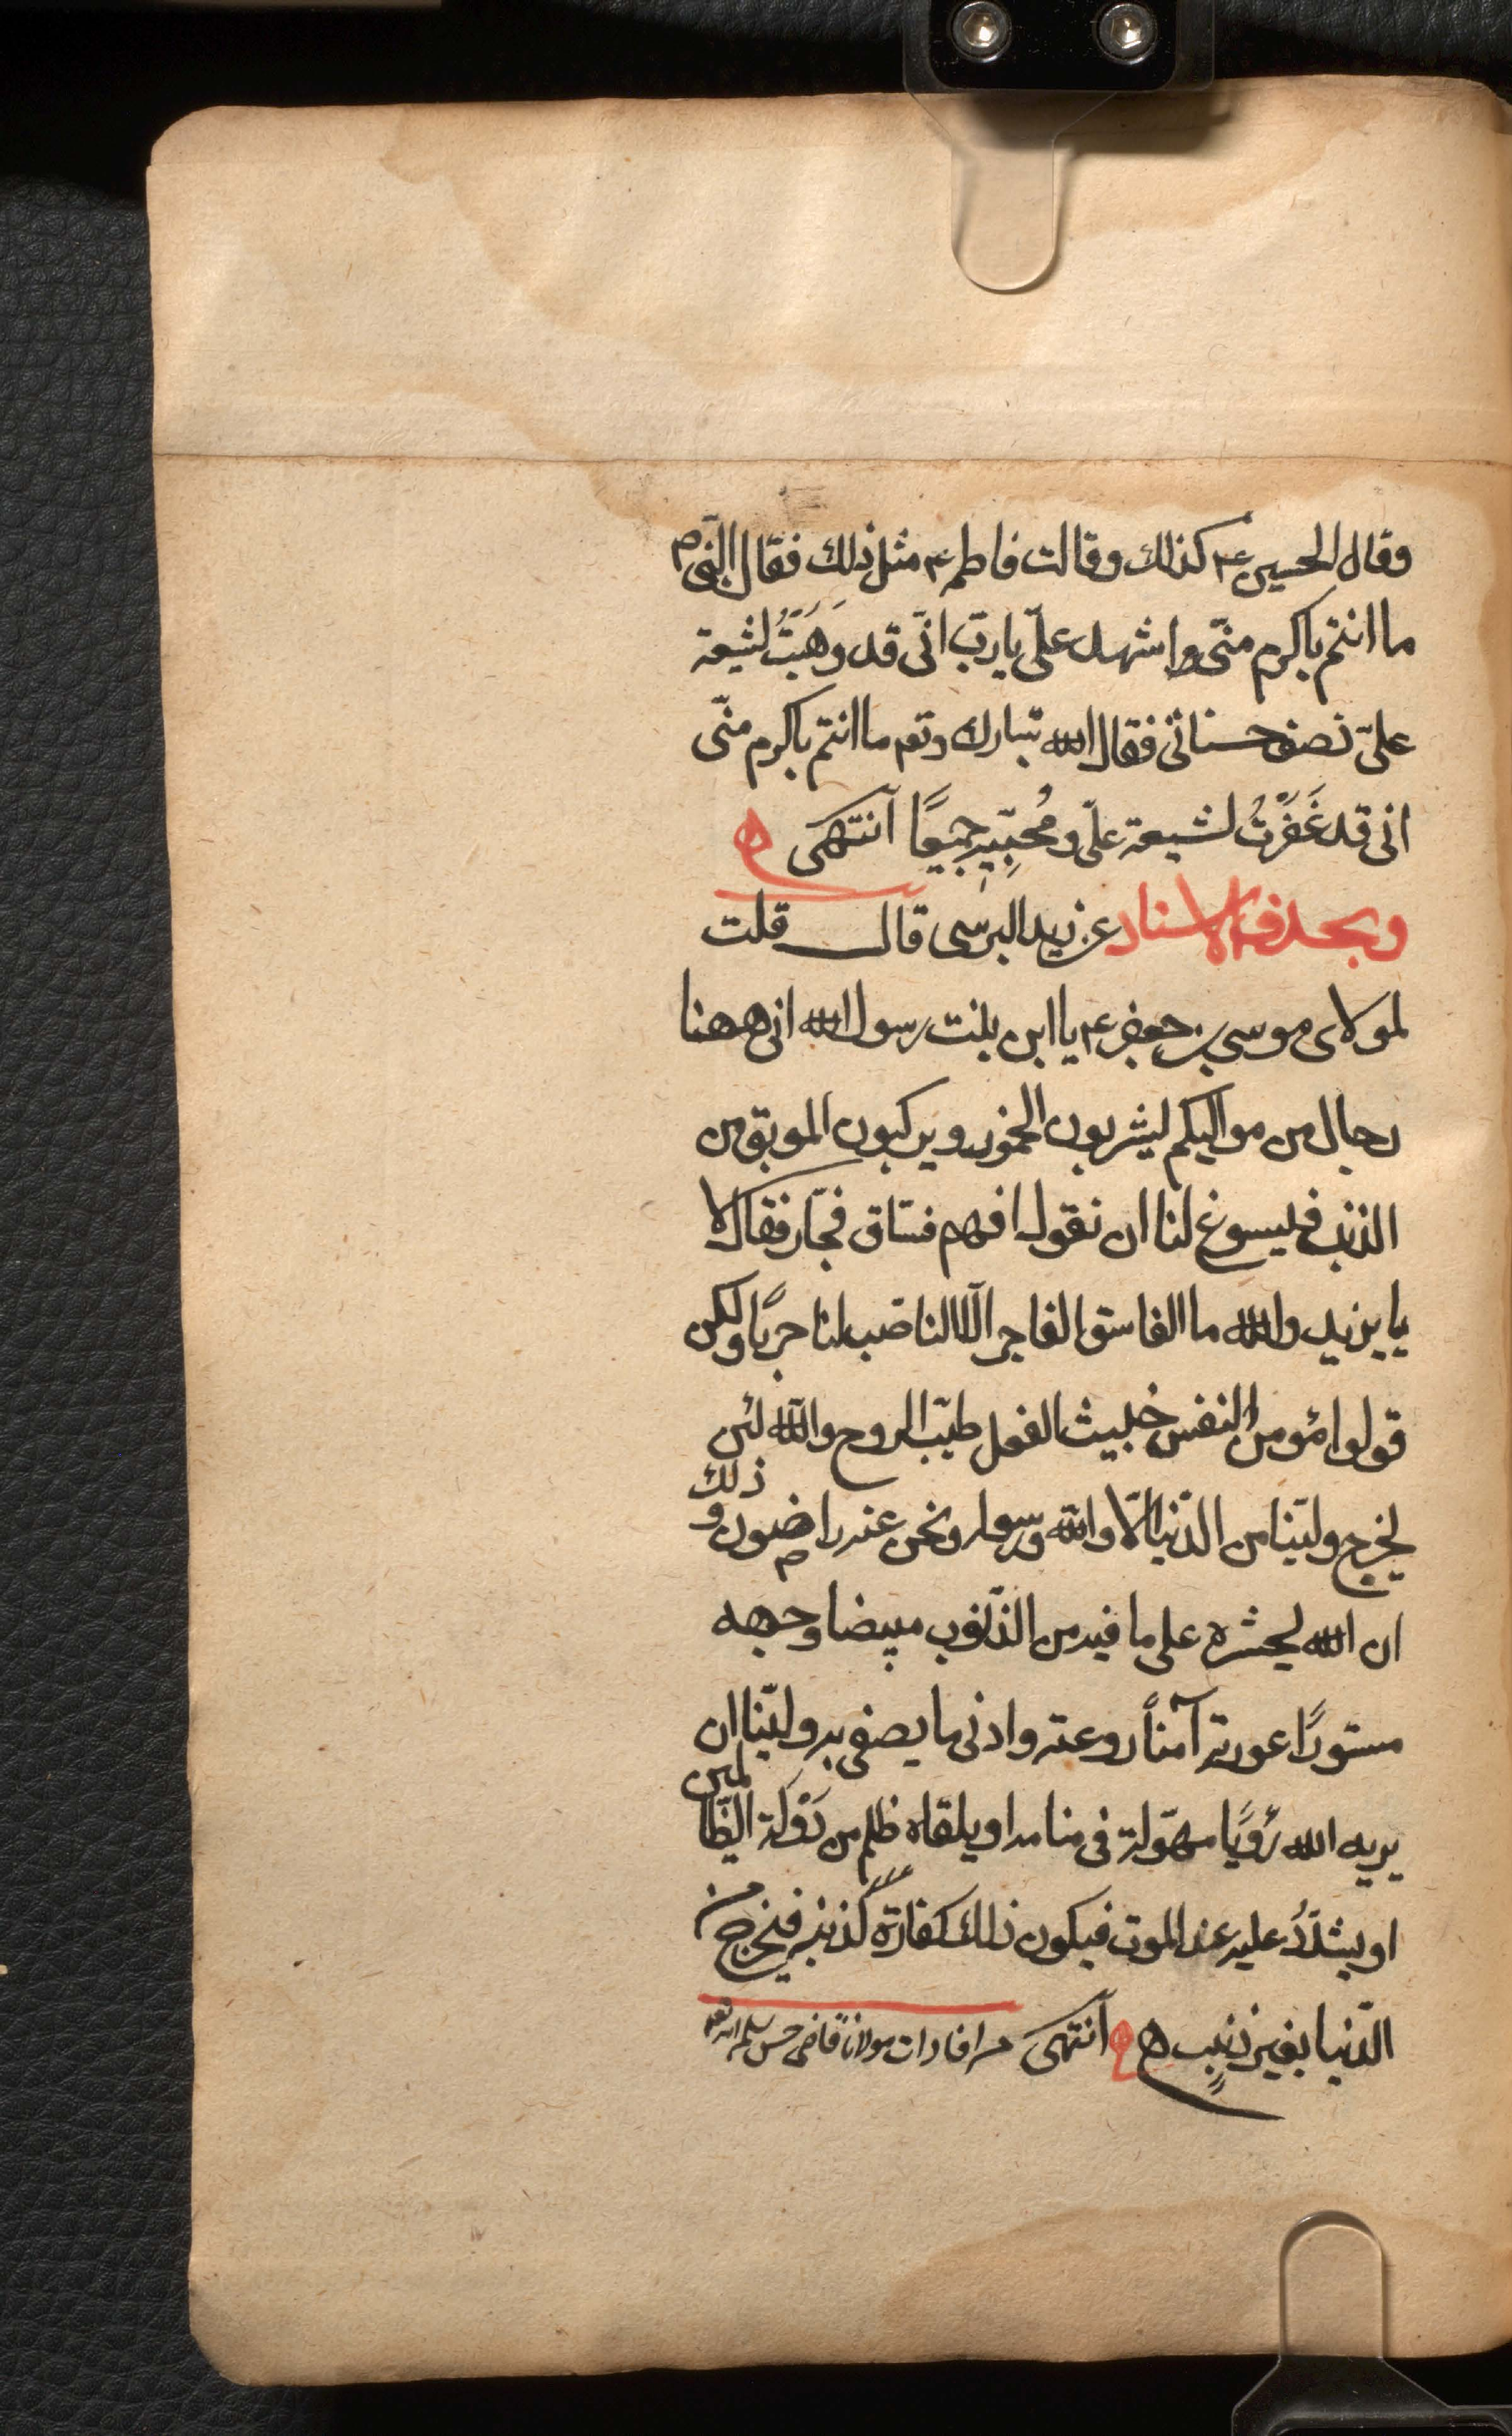 وقال الحسين ع۴ كذلك وقالت فاطمه ع مثل ذلك فقال النبى ص
ما انتم باكرم منّى واشهد علىّ يا ربّ انّى قد وَهَبَتُ لشيعة
علىّ نصف حسناتى فقال الله تبارك وتعه ما انتم باكرم منّى
انى قد غَفَرْتُ لشيعة علىّ ومُحِبّيه جميعًا انتهى ه
وبحذف الاسناد عن زيد البرسى قال قلت
لمولاى موسى بن جعفر ع۴ يا ابن بلنت رسول الله انى ههنا
رجال من مواليكم ليشربون الخمور ويركبون الموبق من
الذنب فيسوغ لنا ان نقول افهم فسّاق فجّار فقال لا
يا يزيد والله ما الفاسق الفاجر الّا الناصب لنا حربًا ولكن
قولوا مؤمن النفس خبيث الفعل طيّب الروح والله لئن
يخرج وليّنا من الدّنيا الّا والله ورسوله ونحن عنه راضون و ذلك
ان الله ليحشره على ما فيه من الذّنوب مبيضا وجهه
مستورًا عورته آمناً روعته وادنى ما يصفى به وليّنا ان
يريه الله رُؤيًا مهوّلة فى منامه او يلقاه ظلم من دَوْلة الظّالمين
او يشدّدُ عليه عند الموت فيكون ذلك كفارةً لذنبه فيخرج من
الدّنيا بغير ذنبٍ ه ه انتهى من افادات مولانا قاضى حسن سلمه الله تعه